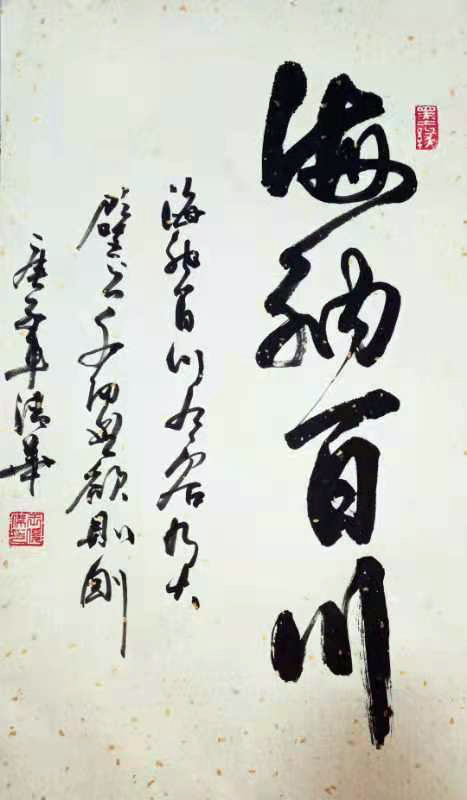 海纳百川
海纳百川有容乃大
壁立千仞无欲则刚
庚子年清华